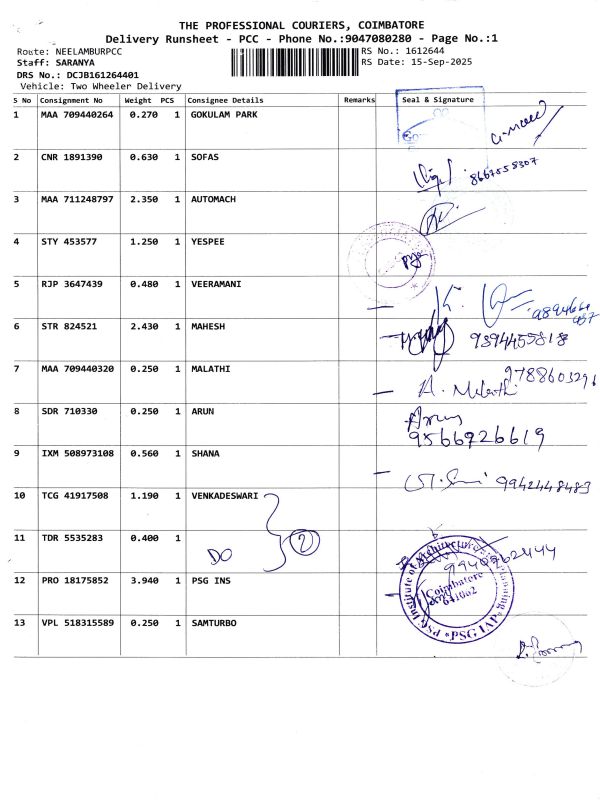 THE PROFESSIONAL COURIERS, COIMBATORE
Delivery Runsheet - PCC - Phone No.:9047080280 - Page No.:1
Route: NEELAMBURPCC
Staff: SARANYA
DRS No.: DCJB161264401
Vehicle: Two Wheeler Delivery
RS No.: 1612644
RS Date: 15-Sep-2025
S No Consignment No Weight PCS Consignee Details Remarks Seal & Signature
1 MAA 709440264 0.270 1 GOKULAM PARK
2 CNR 1891390 0.630 1 SOFAS
8667558307
3 MAA 711248797 2.350 1 AUTOMACH
4 STY 453577 1.250 1 YESPEE
5 RJP 3647439 0.480 1 VEERAMANI
6 STR 824521 2.430 1 MAHESH
9394455818
7 MAA 709440320 0.250 1 MALATHI
A. Malathi 9788603296
8 SDR 710330 0.250 1 ARUN
Arun
9566926619
9 IXM 508973108 0.560 1 SHANA
9942448483
10 TCG 41917508 1.190 1 VENKADESWARI
11 TDR 5535283 0.400 1
DO
2
12 PRO 18175852 3.940 1 PSG INS
PSG Institute of Architecture Planning
Coimbatore
641062
*PSG IAP*
13 VPL 518315589 0.250 1 SAMTURBO